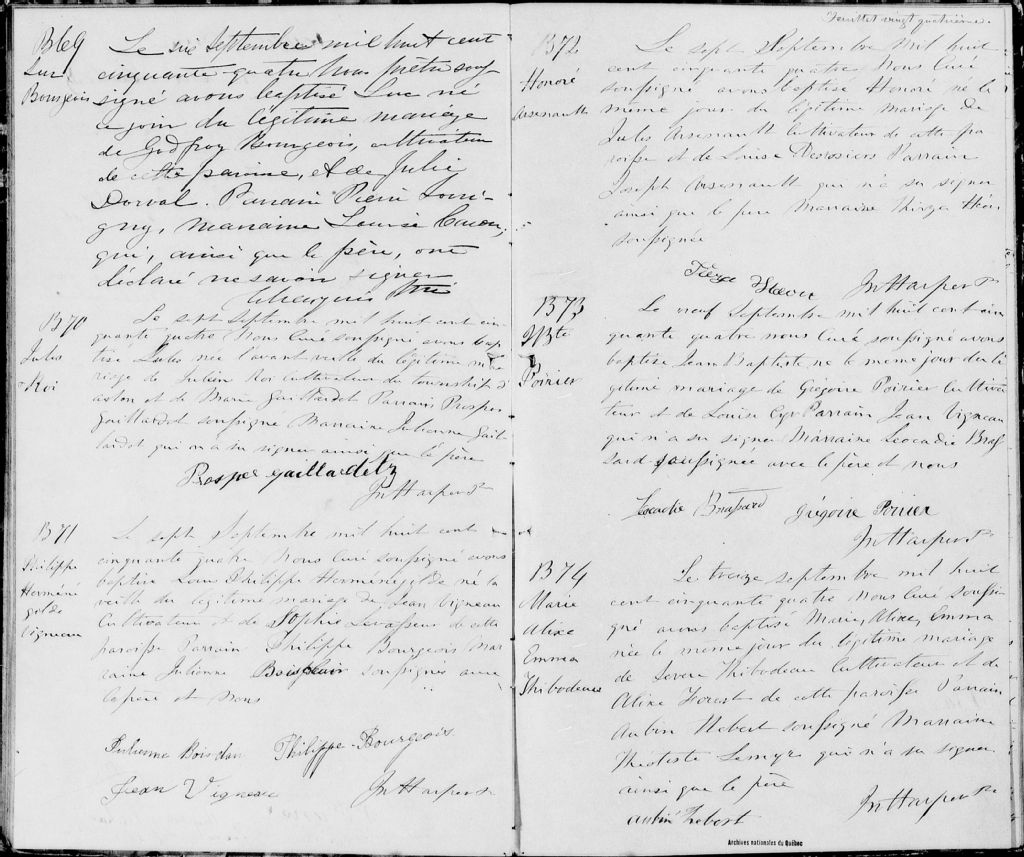 B69
Luc
Bourgeois
Le six Septembre mil huit cent
cinquante quatre Nous prêtre sous
signé avons baptisé Luc né
ce jour du légitime mariage
de Godfroy Bourgeois, cultivateur
de cette paroisse, et de Julie
Dorval. Parrain Pierre
Marraine Louise
qui, ainsi que le père, ont
déclaré ne savoir signer
Ptre
B70
Jules
Roi
Le sept Septembre mil huit cent cin
quante quatre Nous Curé soussigné avons bap
tisé Jules né l'avant veille du légitime ma
riage de Julien Roi Cultivateur du township d'
aston et de Marie Gaillardet Parrain Prosper
Gaillardet soussigné Marraine Julienne Gail
lardet qui n'a su signer ainsi que le père
Prosper gaillardetz
Jn Harper Ptr
B71
Philippe
Herméné
gilde
Vigneau
Le sept Septembre mil huit cent
cinquante quatre Nous Curé soussigné avons
baptisé Louis Philippe Herménégilde né la
veille du légitime mariage de Jean Vigneau
Cultivateur et de Sophie Levasseur de cette
paroisse Parrain Philippe Bourgeois Mar
raine Julienne soussignés avec
le père et Nous
Julienne Philippe Bourgeois
Jean Vigneau Jn Harper Ptr
Feuillet vingt quatrième.
B72
Honoré
Arsenault
Le sept Septembre Mil huit
cent cinquante quatre Nous Curé
soussigné avons baptisé Honoré né le
même jour du légitime mariage de
Jules Arsenault Cultivateur de cette pa
roisse et de Louise Desrosiers Parrain
Joseph Arsenault qui n'a su signer
ainsi que le père Marraine Thirza
soussignée
Jn Harper Ptr
B73
J Bte
Poirier
Le neuf Septembre mil huit cent cin
quante quatre nous Curé soussigné avons
baptisé Jean Baptiste né le même jour du lé
gitime mariage de Grégoire Poirier Cultiva
teur et de Louise Cyr Parrain Jean Vigneau
qui n'a su signer Marraine Léocadie Bras
sard soussignée avec le père et nous
Léocadie Brassard Grégoire Poirier
Jn Harper Ptr
B74
Marie
Alixe
Emma
Thibodeau
Le treize septembre mil huit
cent cinquante quatre Nous Curé soussi
gné avons baptisé Marie, Alixe, Emma
née le même jour du légitime mariage
de Sévère Thibodeau Cultivateur et de
Alixe Forest de cette paroisse Parrain
Aubin Hebert soussigné Marraine
Théotiste Lemyre qui n'a su signer
ainsi que le père
Aubin hebert Jn Harper Ptr
Archives nationales du Québec